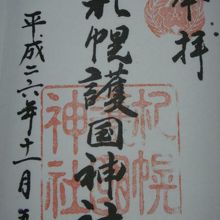 奉拝
札幌護国神社
平成二六年十一月
札幌
神社